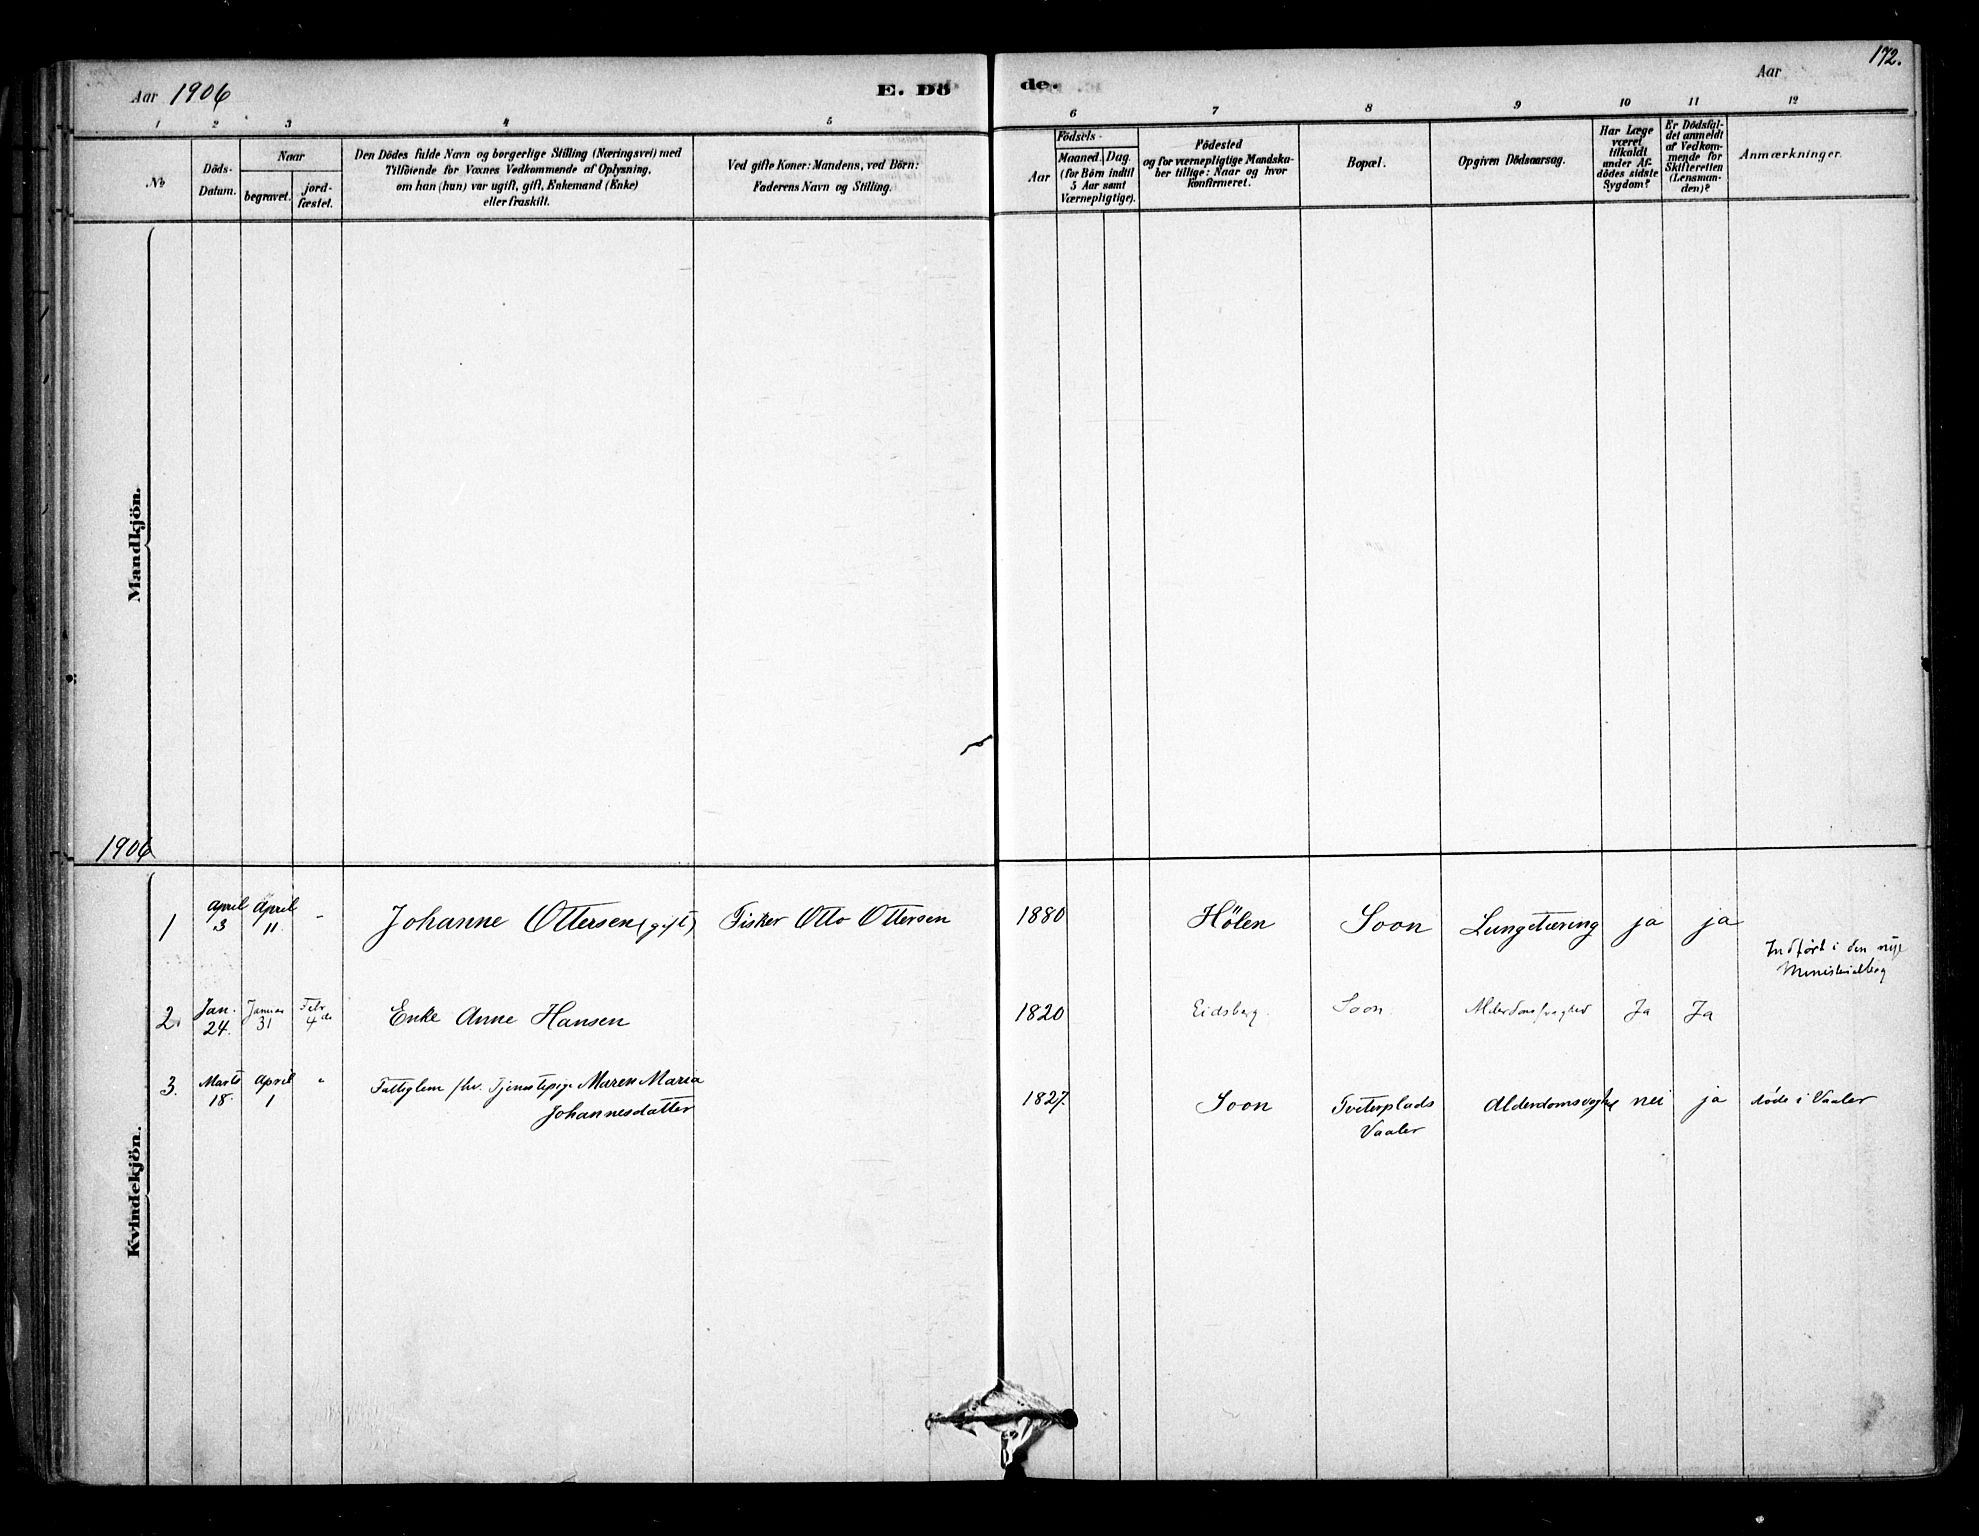 172.
Aar 1906
E. Dö
de.
Aar
1 2 3 4 5 6 7 8 9 10 11 12
No
Döds-
Datum.
Naar
begravet.
jord-
fæstet.
Den Dödes fulde Navn og borgerlige Stilling (Næringsvei) med
Tilföiende for Voxnes Vedkommende af Oplysning,
om han (hun) var ugift, gift, Enkemand (Enke)
eller fraskilt.
Ved gifte Koner: Mandens, ved Börn:
Faderens Navn og Stilling.
Födsels-
Aar
Maaned. Dag.
(for Börn indtil
5 Aar samt
Værnepligtige).
Födested
og for værnepligtige Mandska-
ber tillige: Naar og hvor
konfirmeret.
Bopæl.
Opgiven Dödsaarsag.
Har Læge
været
tilkaldt
under Af-
dödes sidste
Sygdom?
Er Dödsfal-
det anmeldt
af Vedkom-
mende for
Skifteretten
(Lensman-
den)?
Anmærkninger.
Mandkjön.
1906
Kvindekjön.
1 April 3 April 11. " Johanne Ottersen (gift) Fisker Otto Ottersen 1880 Hölen Soon Lungetæring ja ja
Indført i den nye
Ministerialbog
2. Jan. 24. Januar 31 Febr 4de Enke Anne Hansen 1820 Eidsberg. Soon. Alderdomssvaghed Ja Ja
3. Marts 18. April 1 " Fattiglem fhv. Tjenestepige Maren Maria
Johannesdatter
1827. Soon Tveterplads
Vaaler
Alderdomsvaghd nei ja døde i Vaaler